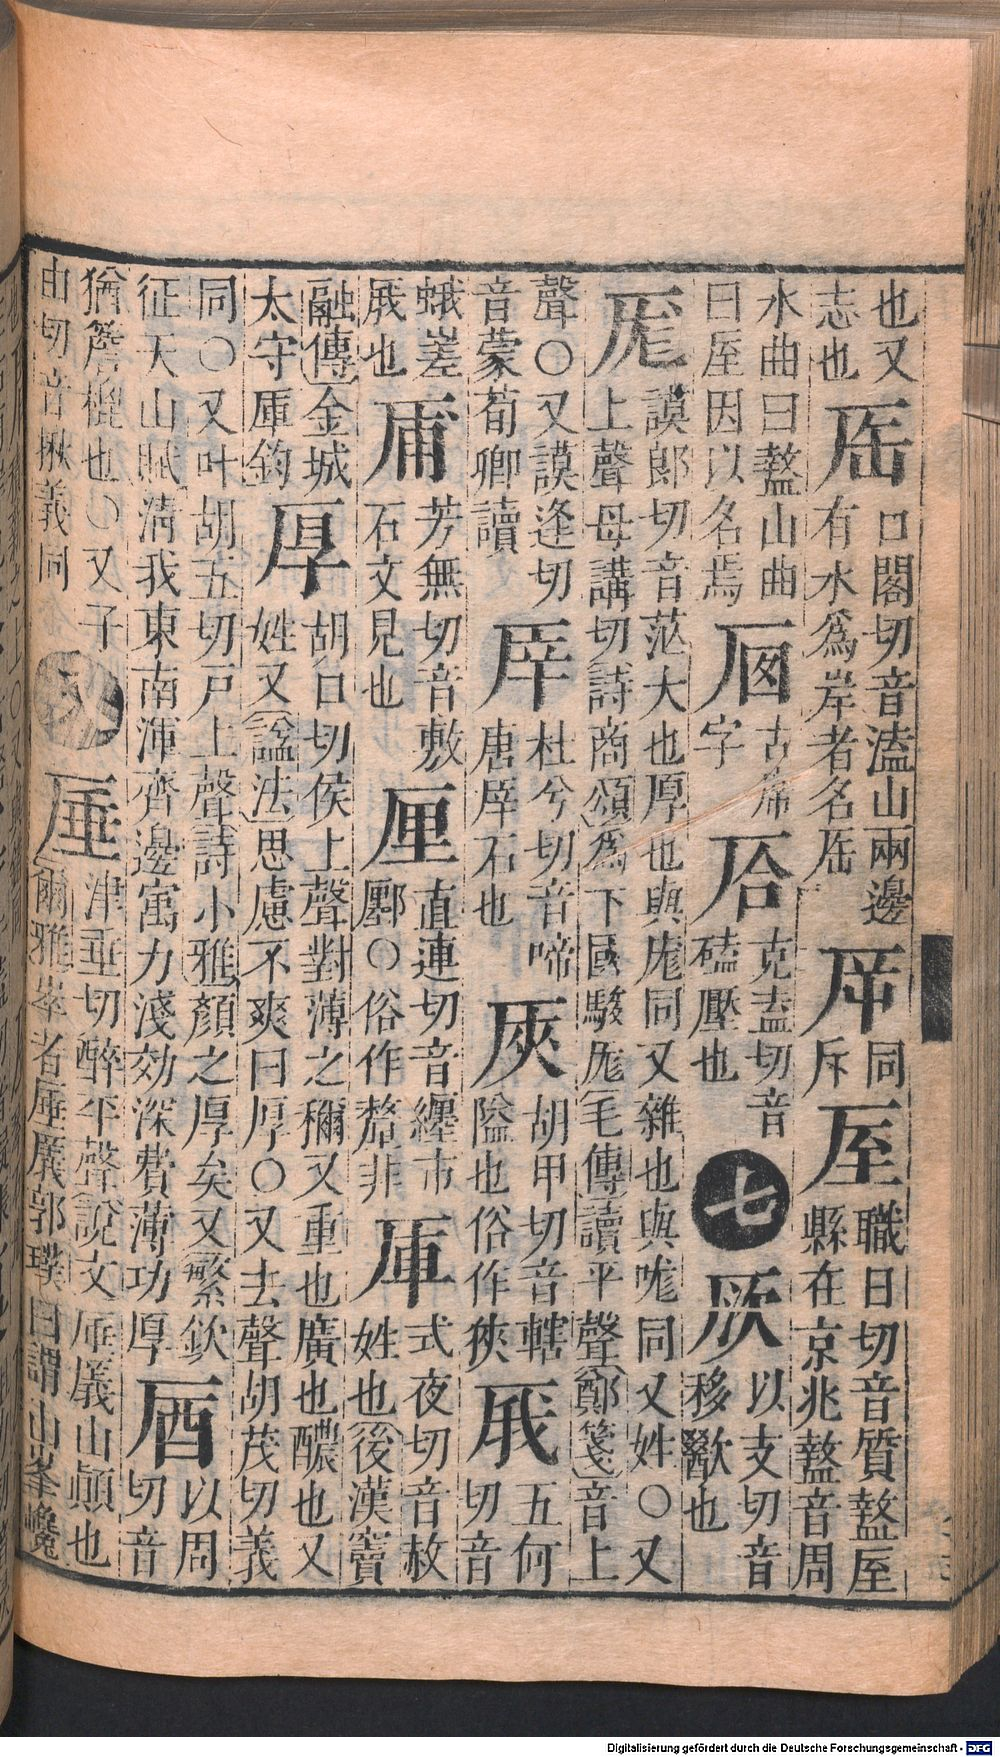 也又
志也
口閣切音溘山兩邊
有水爲岸者名
同
斥
厔
職日切音質盩厔
縣在京兆盩音周
水曲曰盩山曲
曰厔因以名焉
古席
字
㕉
克盍切音
磕壓也
七
以支切音
移歠也
厖
謨郎切音茫大也厚也與庬同又雜也與哤同又姓○又
上聲母講切詩商頌爲下國駿厖毛傳讀平聲鄭箋音上
聲○又謨逢切
音蒙荀卿讀
厗
杜兮切音啼
唐厗石也
胡甲切音轄
隘也俗作狹
五何
切音
蛾嵳
也
芳無切音敷
石文見也
厘
直連切音纏市
鄽○俗作釐非
厙
式夜切音赦
姓也後漢竇
融傳金城
太守厙鈞
厚
胡口切侯上聲對薄之稱又重也廣也醲也又
姓又諡法思慮不爽曰厚○又去聲胡茂切義
同○又叶胡五切戶上聲詩小雅顏之厚矣又繁欽
征天山賦清我東南渾齊邊寓力淺効深費薄功厚
以周
切音
猶簷梠也○又子
由切音揪義同
八
厜
津垂切醉平聲說文厜㕒山顚也
爾雅崒者厜㕒郭璞曰謂山峯巉
Digitalisierung gefördert durch die Deutsche Forschungsgemeinschaft - DFG